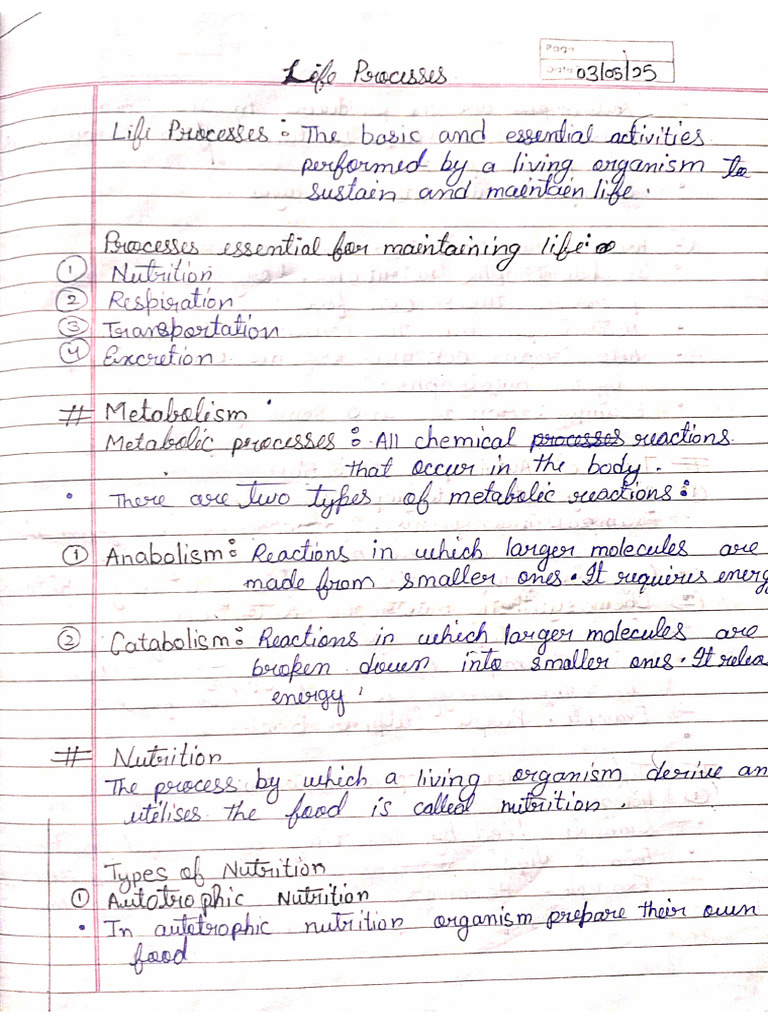 Page
Date 03/05/25
Life Processes
Life Processes : The basic and essential activities
performed by a living organism to
sustain and maintain life.
Processes essential for maintaining life :
① Nutrition
② Respiration
③ Transportation
④ Excretion
# Metabolism
Metabolic processes : All chemical processes reactions
that occur in the body.
• There are two types of metabolic reactions :
① Anabolism : Reactions in which larger molecules are
made from smaller ones. It requiries energ
② Catabolism : Reactions in which larger molecules are
broken down into smaller ones. It relea
energy.
# Nutrition
The process by which a living organism derive an
utilises the food is called nutrition.
Types of Nutrition
① Autotrophic Nutrition
• In autotrophic nutrition organism prepare their own
food